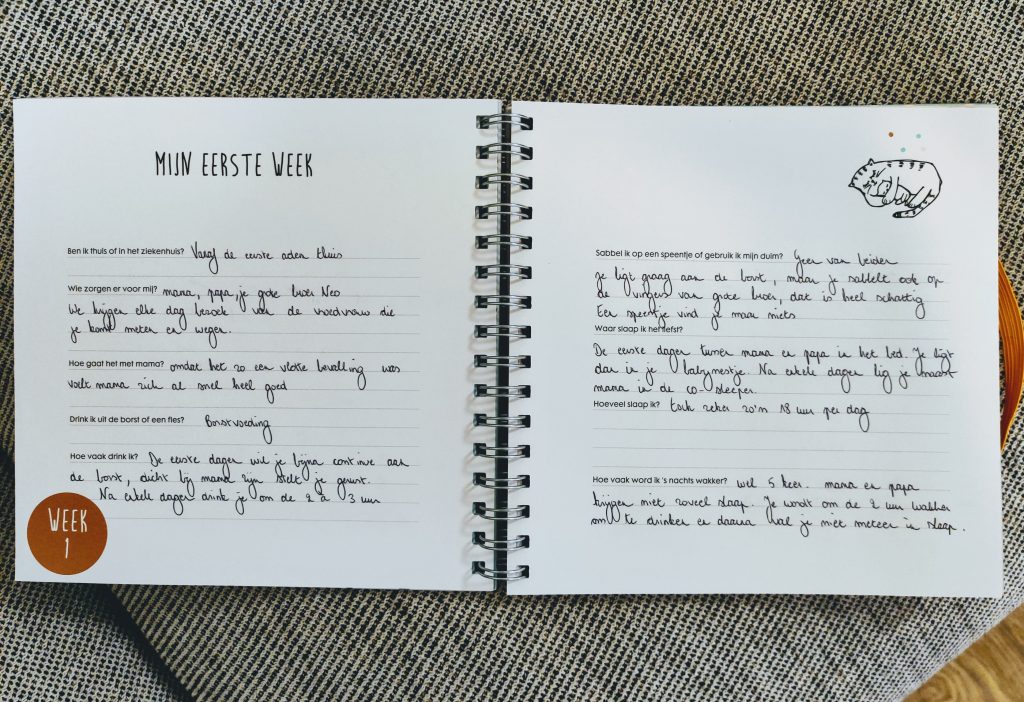 MIJN EERSTE WEEK
Ben ik thuis of in het ziekenhuis? Vanaf de eerste adem thuis
Wie zorgen er voor mij? mama, papa, je grote broer Neo
We krijgen elke dag bezoek van de vroedvrouw die
je komt meten en wegen.
Hoe gaat het met mama? omdat het zo een vlotte bevalling was
voelt mama zich al snel heel goed
Drink ik uit de borst of een fles? Borstvoeding
Hoe vaak drink ik? De eerste dagen wil je bijna continue aan
de borst, dicht bij mama zijn stelt je gerust.
Na enkele dagen drink je om de 2 à 3 uur
WEEK
1
Sabbel ik op een speentje of gebruik ik mijn duim? Geen van beiden
je ligt graag aan de borst, maar je sabbelt ook op
de vingers van grote broer, dat is heel schattig
Een speentje vind je maar niets
Waar slaap ik het liefst?
De eerste dagen tussen mama en papa in het bed. Je ligt
dan in je babynestje. Na enkele dagen lig je naast
mama in de co-sleeper.
Hoeveel slaap ik? toch zeker zo'n 18 uur per dag
Hoe vaak word ik 's nachts wakker? wel 5 keer. mama en papa
krijgen niet zoveel slaap. Je wordt om de 2 uur wakker
om te drinken en daarna val je niet meteen in slaap.